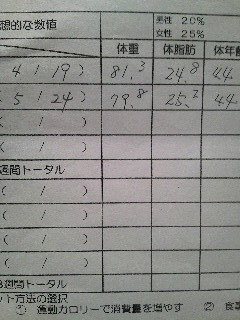 想的な数値
男性 20%
女性 25%
体重 体脂肪 体年齢
4 / 19 ) 81.3 24.8 44
( 5 / 24 ) 79.8 25.2 44
( / )
( / )
週間トータル
( / )
( / )
( / )
( / )
週間トータル
ット方法の選択
① 運動カロリーで消費量を増やす ② 食事